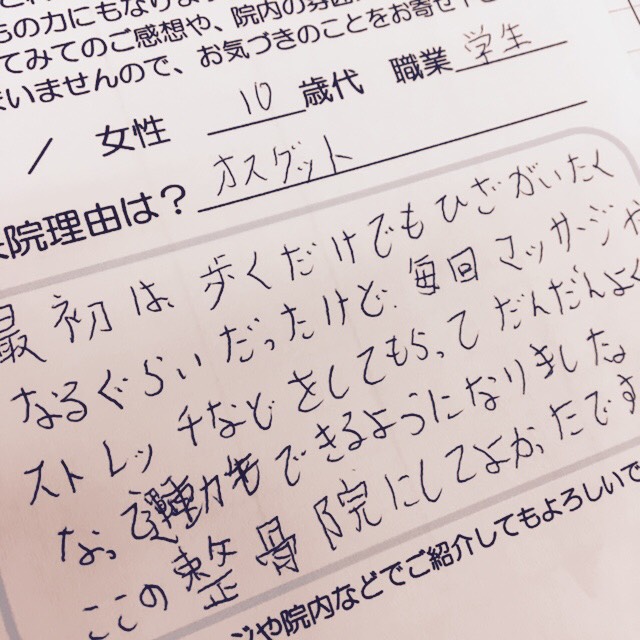 の力にもなりま
てみてのご感想や、院内の雰囲
まいませんので、お気づきのことをお寄せ下
／ 女性 10 歳代 職業 学生
来院理由は？ オスグット
最初は、歩くだけでもひざがいたく
なるぐらいだったけど、毎回マッサージや
ストレッチなどをしてもらってだんだんよく
なって運動もできるようになりました
この整骨院にしてよかったです
ジや院内などでご紹介してもよろしいで